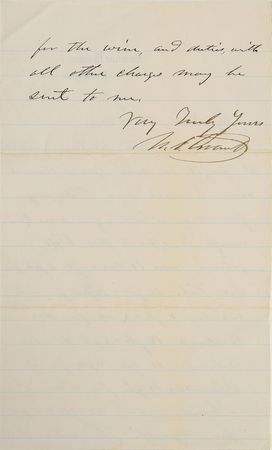 for the wine, and duties, with
all other charges may be
sent to me.
Very Truly Yours
U. S. Grant